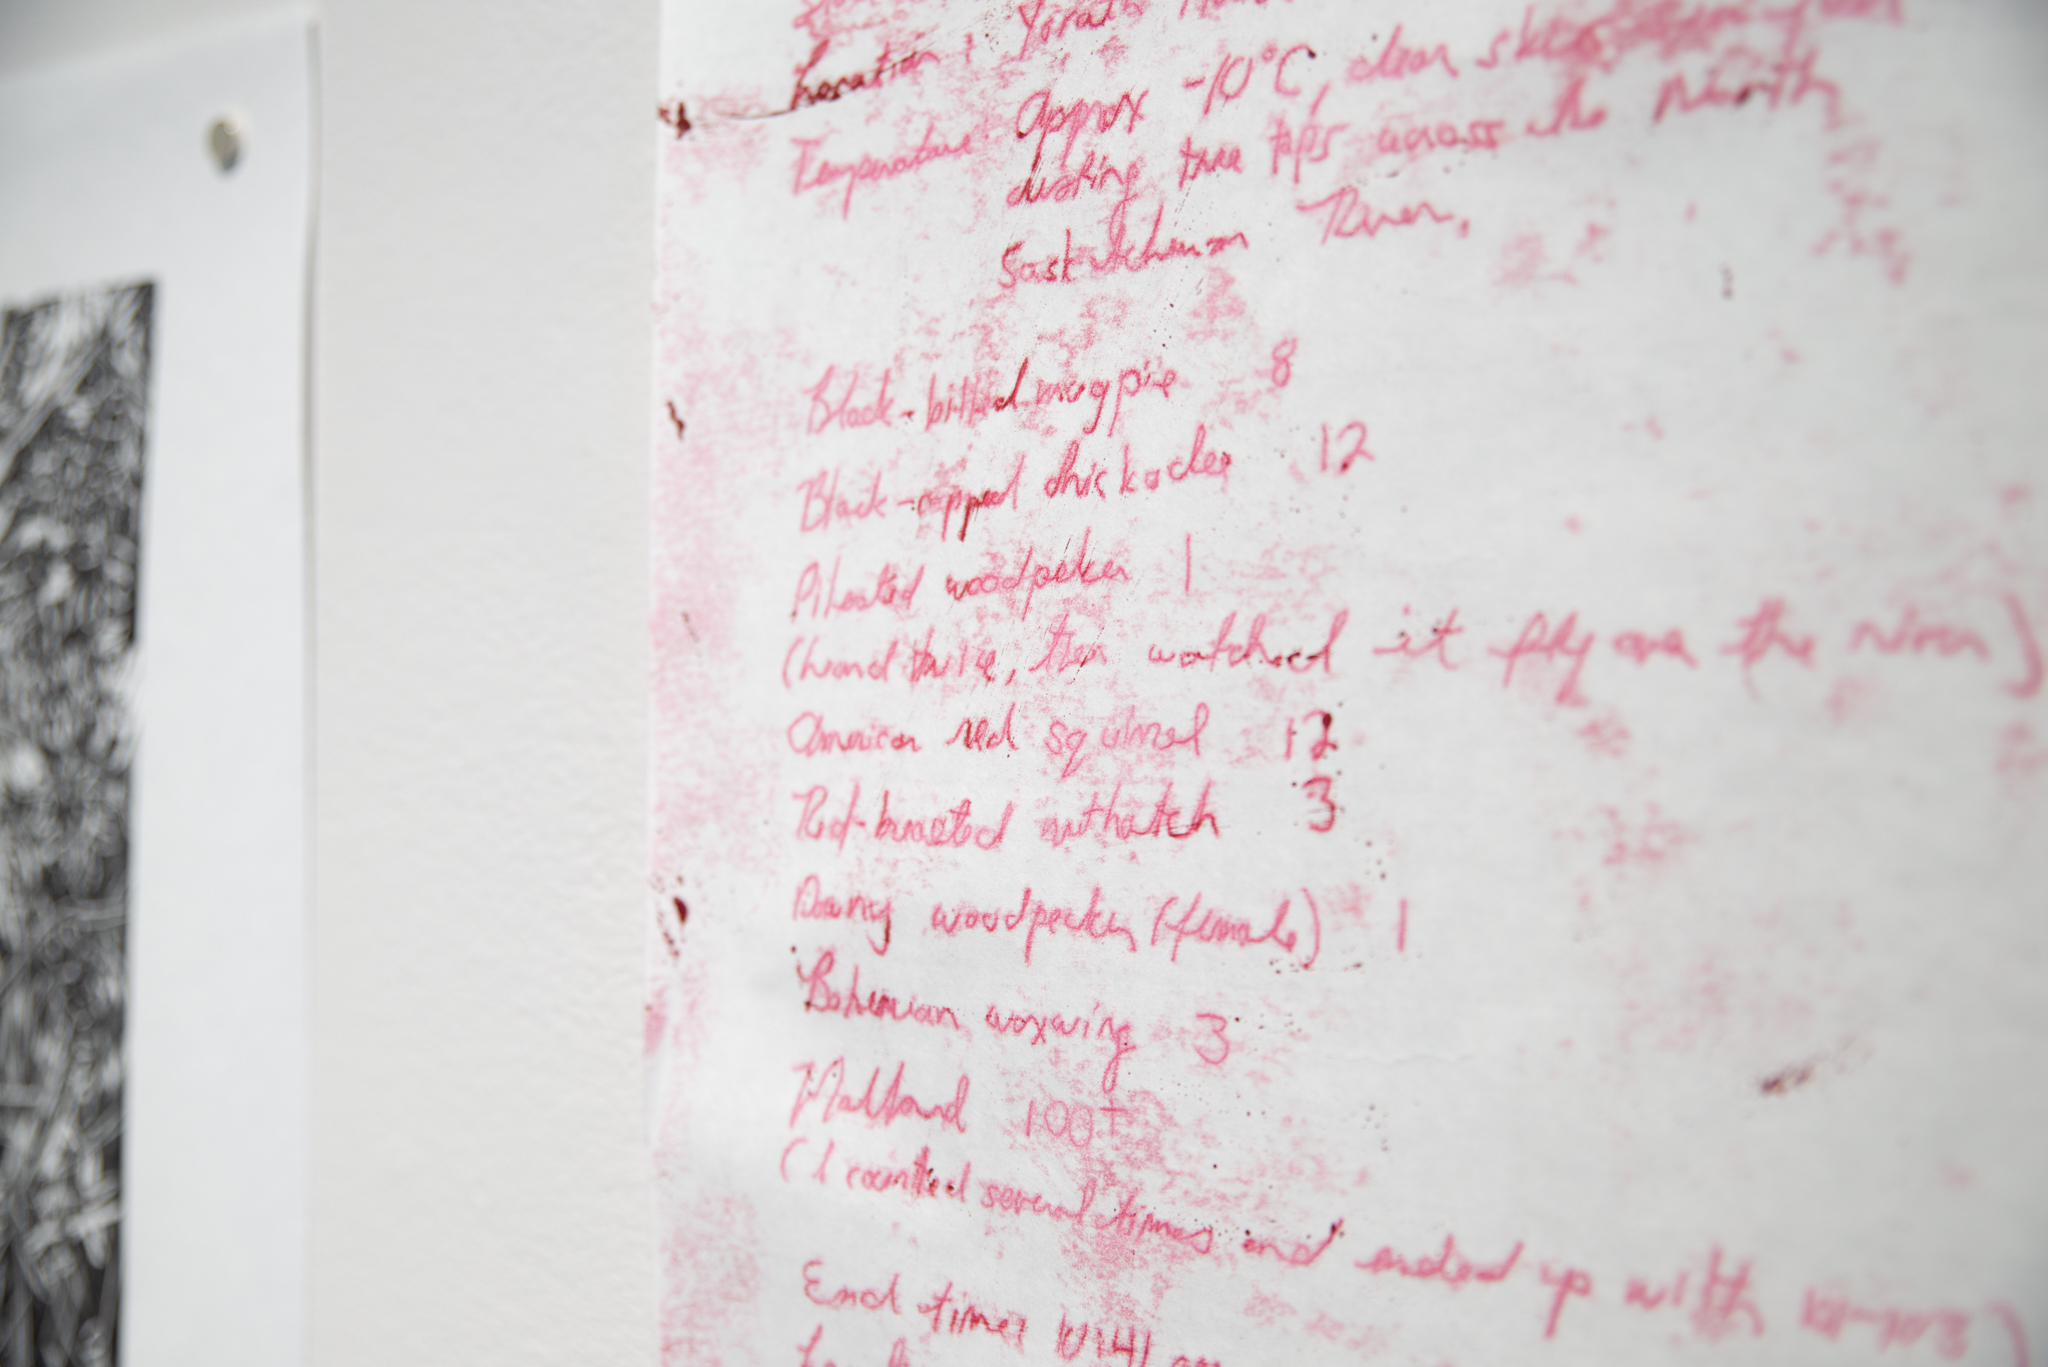 Location:
Temperature approx -10°C, clear skies
dusting tree tops across the North
Saskatchewan River.
Black-billed magpie 8
Black-capped chickadee 12
Pileated woodpecker 1
(heard twice, then watched it fly over the river)
American red squirrel 12
Red-breasted nuthatch 3
Downy woodpecker (female) 1
Bohemian waxwing 3
Mallard 100+
(I counted several times and ended up with
End time: 10:41 am